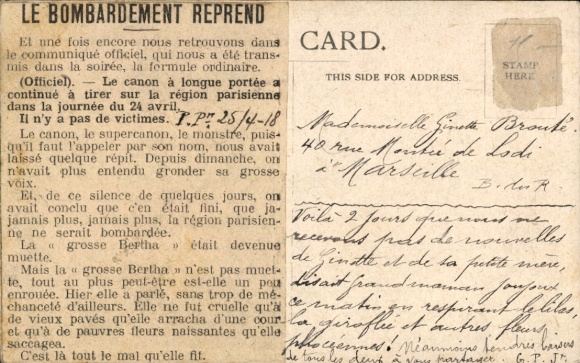 LE BOMBARDEMENT REPREND
Et une fois encore nous retrouvons dans
le communiqué officiel, qui nous a été trans-
mis dans la soirée, la formule ordinaire.
(Officiel). — Le canon à longue portée a
continué à tirer sur la région parisienne
dans la journée du 24 avril.
Il n'y a pas de victimes. P. Pn 25/4-18
Le canon, le supercanon, le monstre, puis-
qu'il faut l'appeler par son nom, nous avait
laissé quelque répit. Depuis dimanche, on
n'avait plus entendu gronder sa grosse
voix.
Et, de ce silence de quelques jours, on
avait conclu que c'en était fini, que ja-
jamais plus, jamais plus, la région parisien-
ne ne serait bombardée.
La « grosse Bertha » était devenue
muette.
Mais la « grosse Bertha » n'est pas muet-
te, tout au plus peut-être est-elle un peu
enrouée. Hier elle a parlé, sans trop de mé-
chanceté d'ailleurs. Elle ne fut cruelle qu'à
de vieux pavés qu'elle arracha d'une cour
et qu'à de pauvres fleurs naissantes qu'elle
saccagea.
C'est là tout le mal qu'elle fit.
CARD.
THIS SIDE FOR ADDRESS.
STAMP
HERE
Mademoiselle Ginette Brouté.
40 rue Montée de Lodi
à Marseille
B. du R
Voilà 2 jours que nous ne
recevons pas de nouvelles
de Ginette et de sa petite mère,
disait grand maman
ce matin en respirant le lilas,
la giroflée et autres fleurs
phocéennes. Néanmoins tendres baisers
de tous les deux à vous partager. G. P. J.